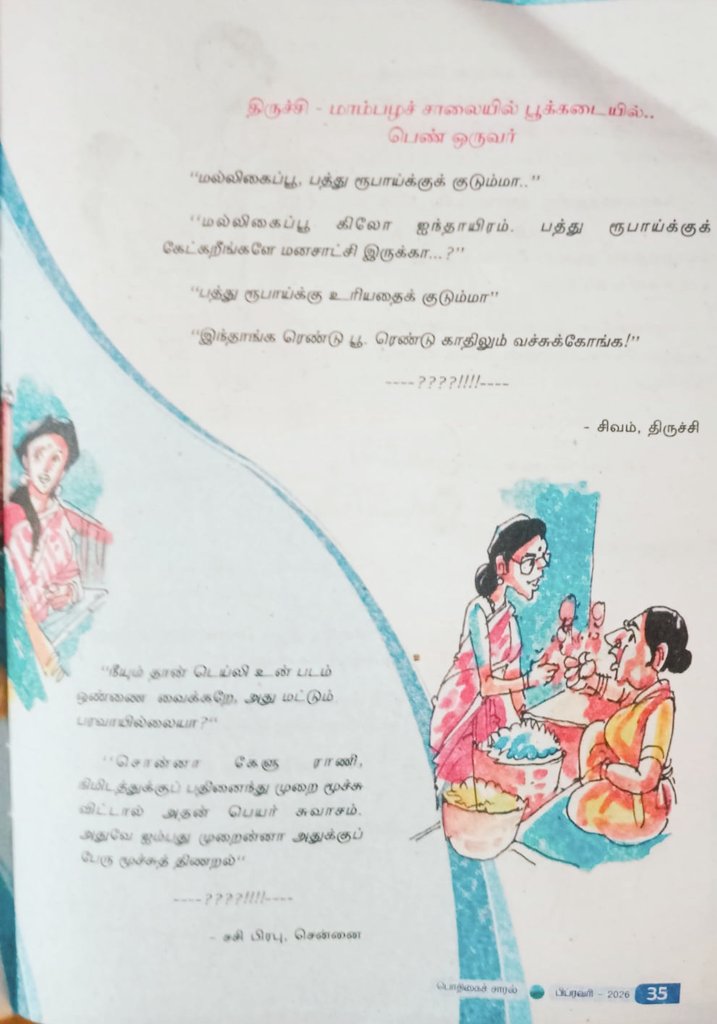 திருச்சி - மாம்பழச் சாலையில் பூக்கடையில்..
பெண் ஒருவர்
“மல்லிகைப்பூ, பத்து ரூபாய்க்குக் குடும்மா..”
“மல்லிகைப்பூ கிலோ ஐந்தாயிரம். பத்து ரூபாய்க்குக்
கேட்கறீங்களே மனசாட்சி இருக்கா...?”
“பத்து ரூபாய்க்கு உரியதைக் குடும்மா”
“இந்தாங்க ரெண்டு பூ. ரெண்டு காதிலும் வச்சுக்கோங்க!”
----????!!!!----
- சிவம், திருச்சி
“நீயும் தான் டெய்லி உன் படம்
ஒண்ணை வைக்கறே, அது மட்டும்
பரவாயில்லையா?“
“சொன்னா கேளு ராணி,
நிமிடத்துக்குப் பதினைந்து முறை மூச்சு
விட்டால் அதன் பெயர் சுவாசம்.
அதுவே ஐம்பது முறைன்னா அதுக்குப்
பேரு மூச்சுத் திணறல்“
----????!!!!----
- சசி பிரபு, சென்னை
பொதிகைச் சாரல் பிப்ரவரி - 2026 35